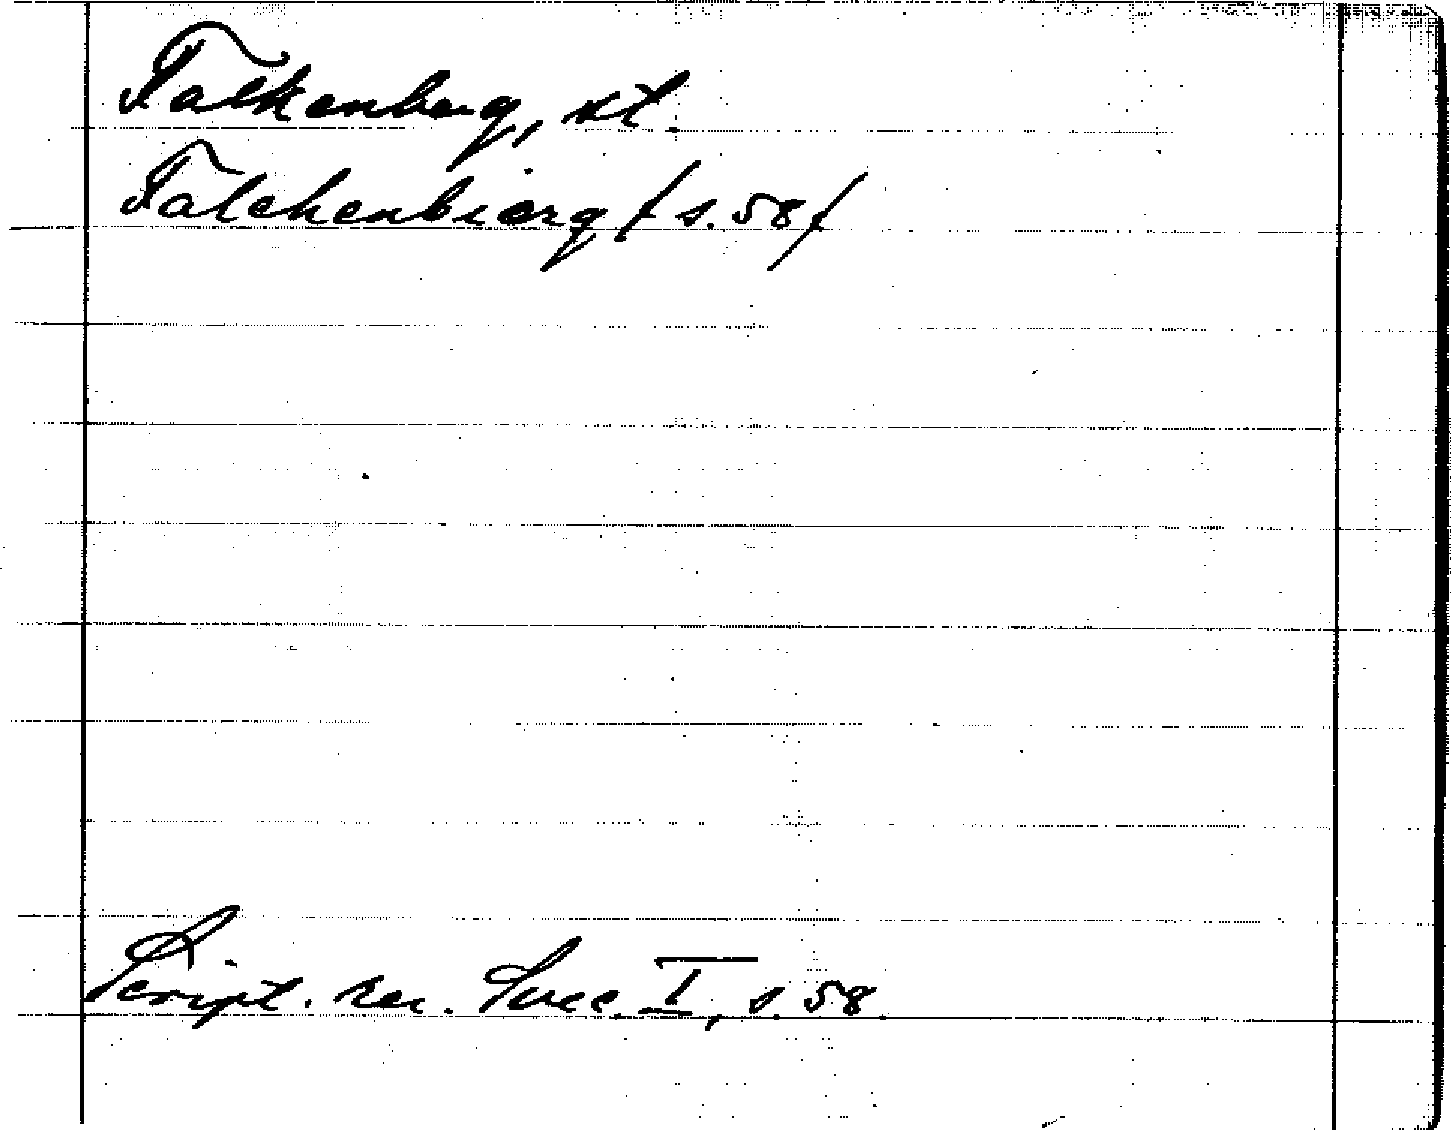 Falkenberg, st
Falchenbierg / s. 58 /
Script. rer. Svec. I, s. 58.